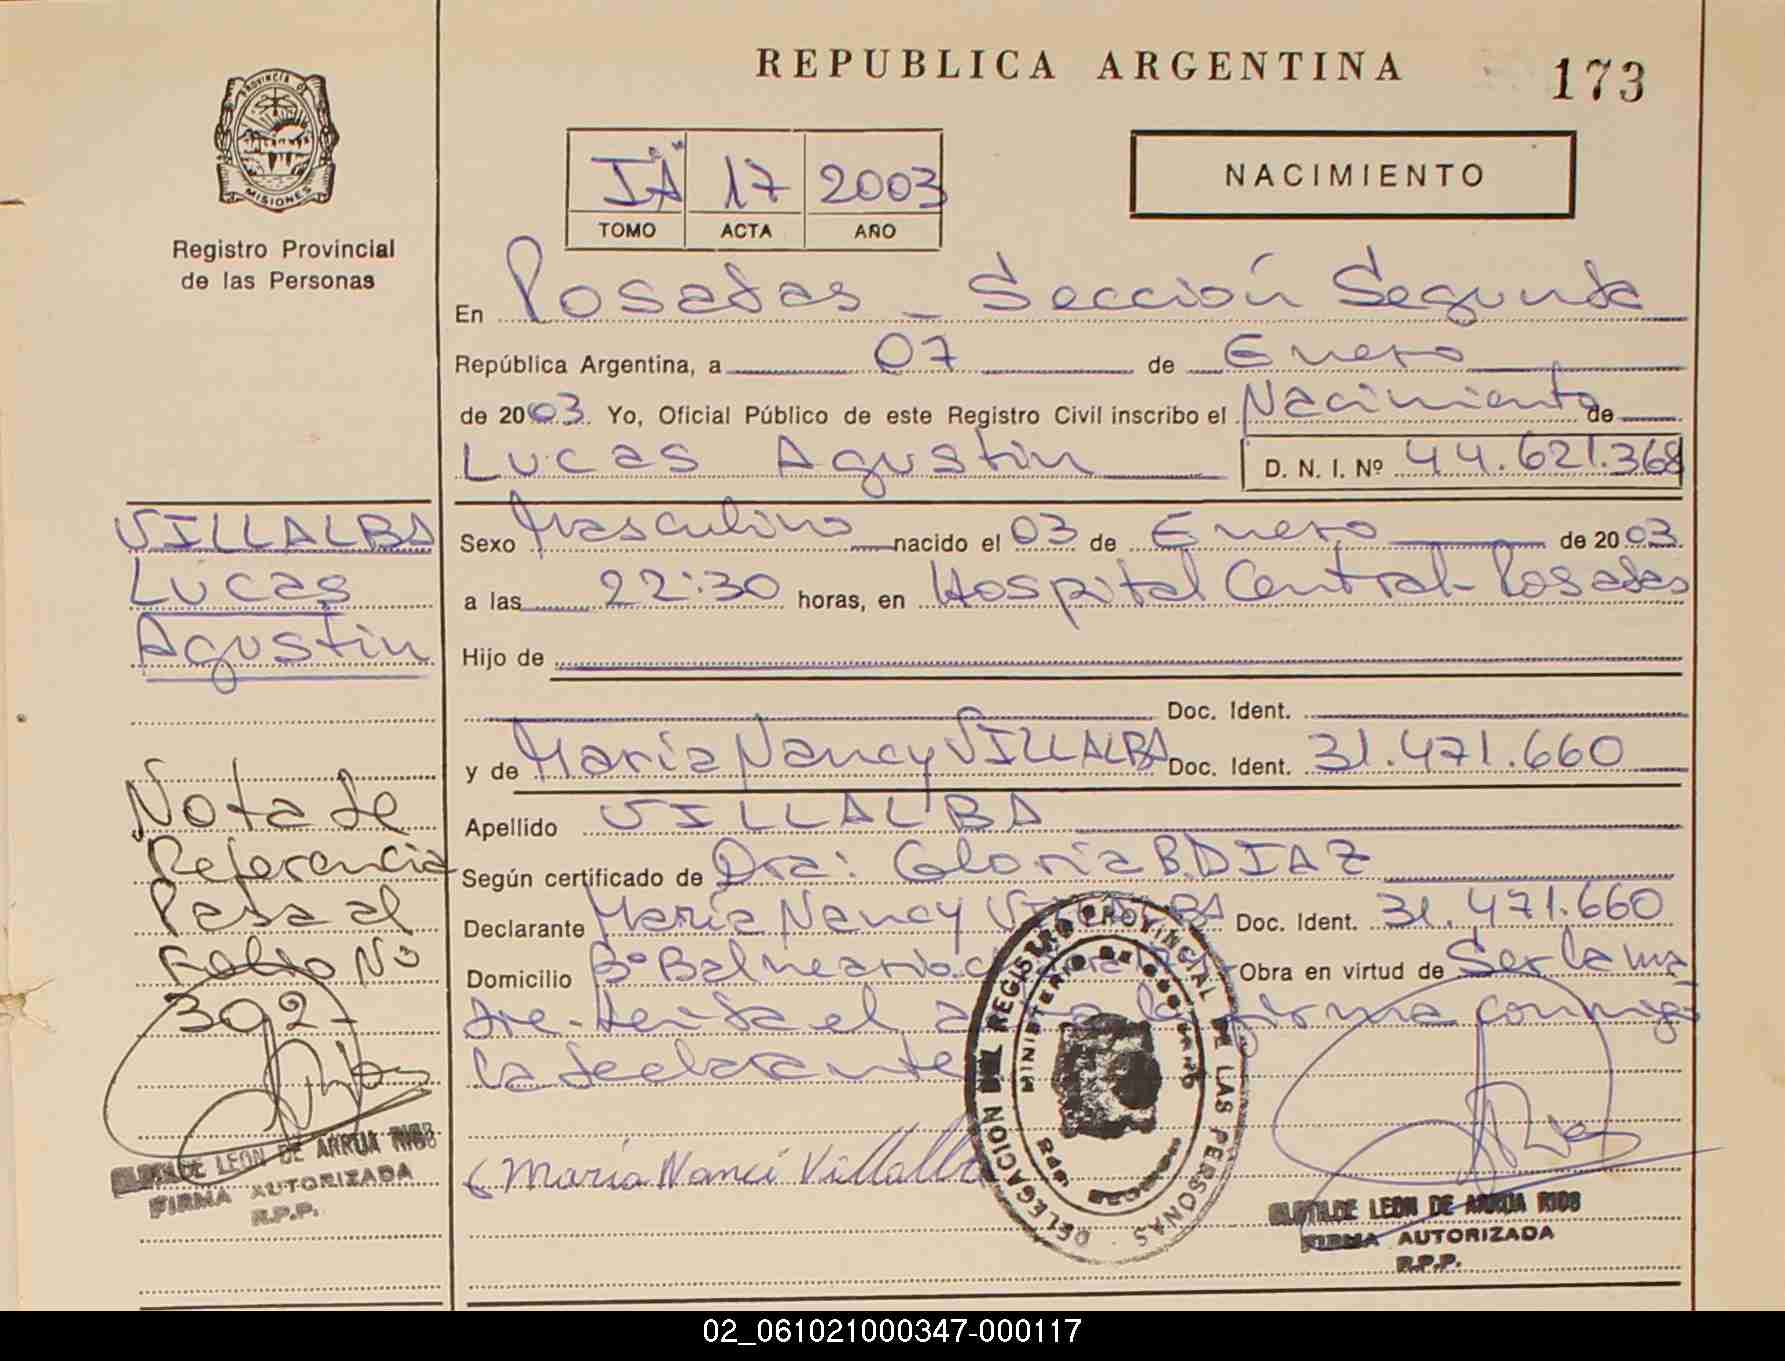 REPUBLICA ARGENTINA
173
PROVINCIA DE
MISIONES
Registro Provincial
de las Personas
I "A" 17 2003
TOMO ACTA AÑO
NACIMIENTO
En Posadas - Sección Segunda
República Argentina, a 07 de Enero
de 2003. Yo, Oficial Público de este Registro Civil inscribo el Nacimiento de
Lucas Agustin D. N. I. Nº 44.621.368
Sexo Masculino nacido el 03 de Enero de 2003.
a las 22:30 horas, en Hospital Central - Posadas
Hijo de
Doc. Ident.
y de María Nancy VILLALBA Doc. Ident. 31.471.660
Apellido VILLALBA
Según certificado de Dra: Gloria B. DIAZ
Declarante María Nancy VILLALBA Doc. Ident. 31.471.660
Domicilio Bº Balneario Obra en virtud de Ser la ma
dre. Leída el acta la firma conmigo
la declarante
María Nanci Villalba
DELEGACION DEL REGISTRO PROVINCIAL DE LAS PERSONAS
MINISTERIO DE GOBIERNO
CLOTILDE LEON DE ARRUA RIOS
FIRMA AUTORIZADA
R.P.P.
VILLALBA
Lucas
Agustin
Nota de
Referencia
Pasa al
Folio Nº
302
CLOTILDE LEON DE ARRUA RIOS
FIRMA AUTORIZADA
R.P.P.
02_061021000347-000117